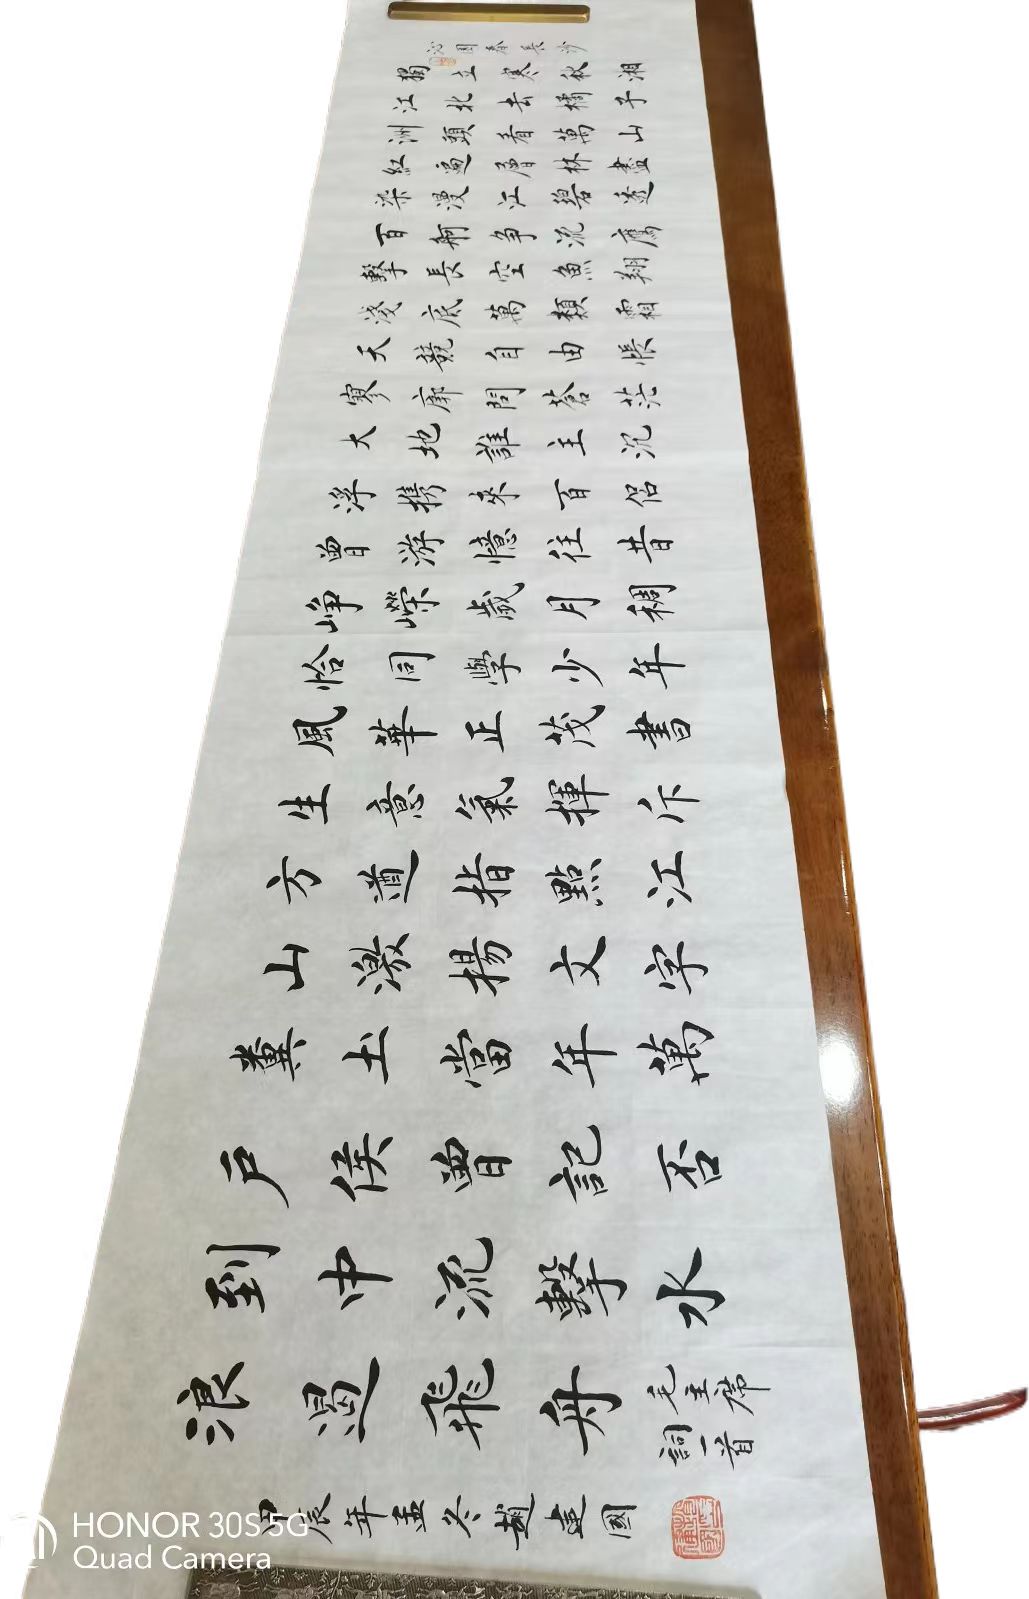 沁園春長沙
獨立寒秋湘
江北去橘子
洲頭看萬山
紅遍層林盡
染漫江碧透
百舸争流鷹
擊長空魚翔
淺底萬類霜
天競自由悵
寥廓問蒼茫
大地誰主沉
浮携來百侶
曾游憶往昔
崢嶸歲月稠
恰同學少年
風華正茂書
生意氣揮斥
方遒指點江
山激揚文字
糞土當年萬
戶侯曾記否
到中流擊水
浪遏飛舟
毛主席
詞一首
甲辰年孟冬趙建國
HONOR 30S 5G
Quad Camera